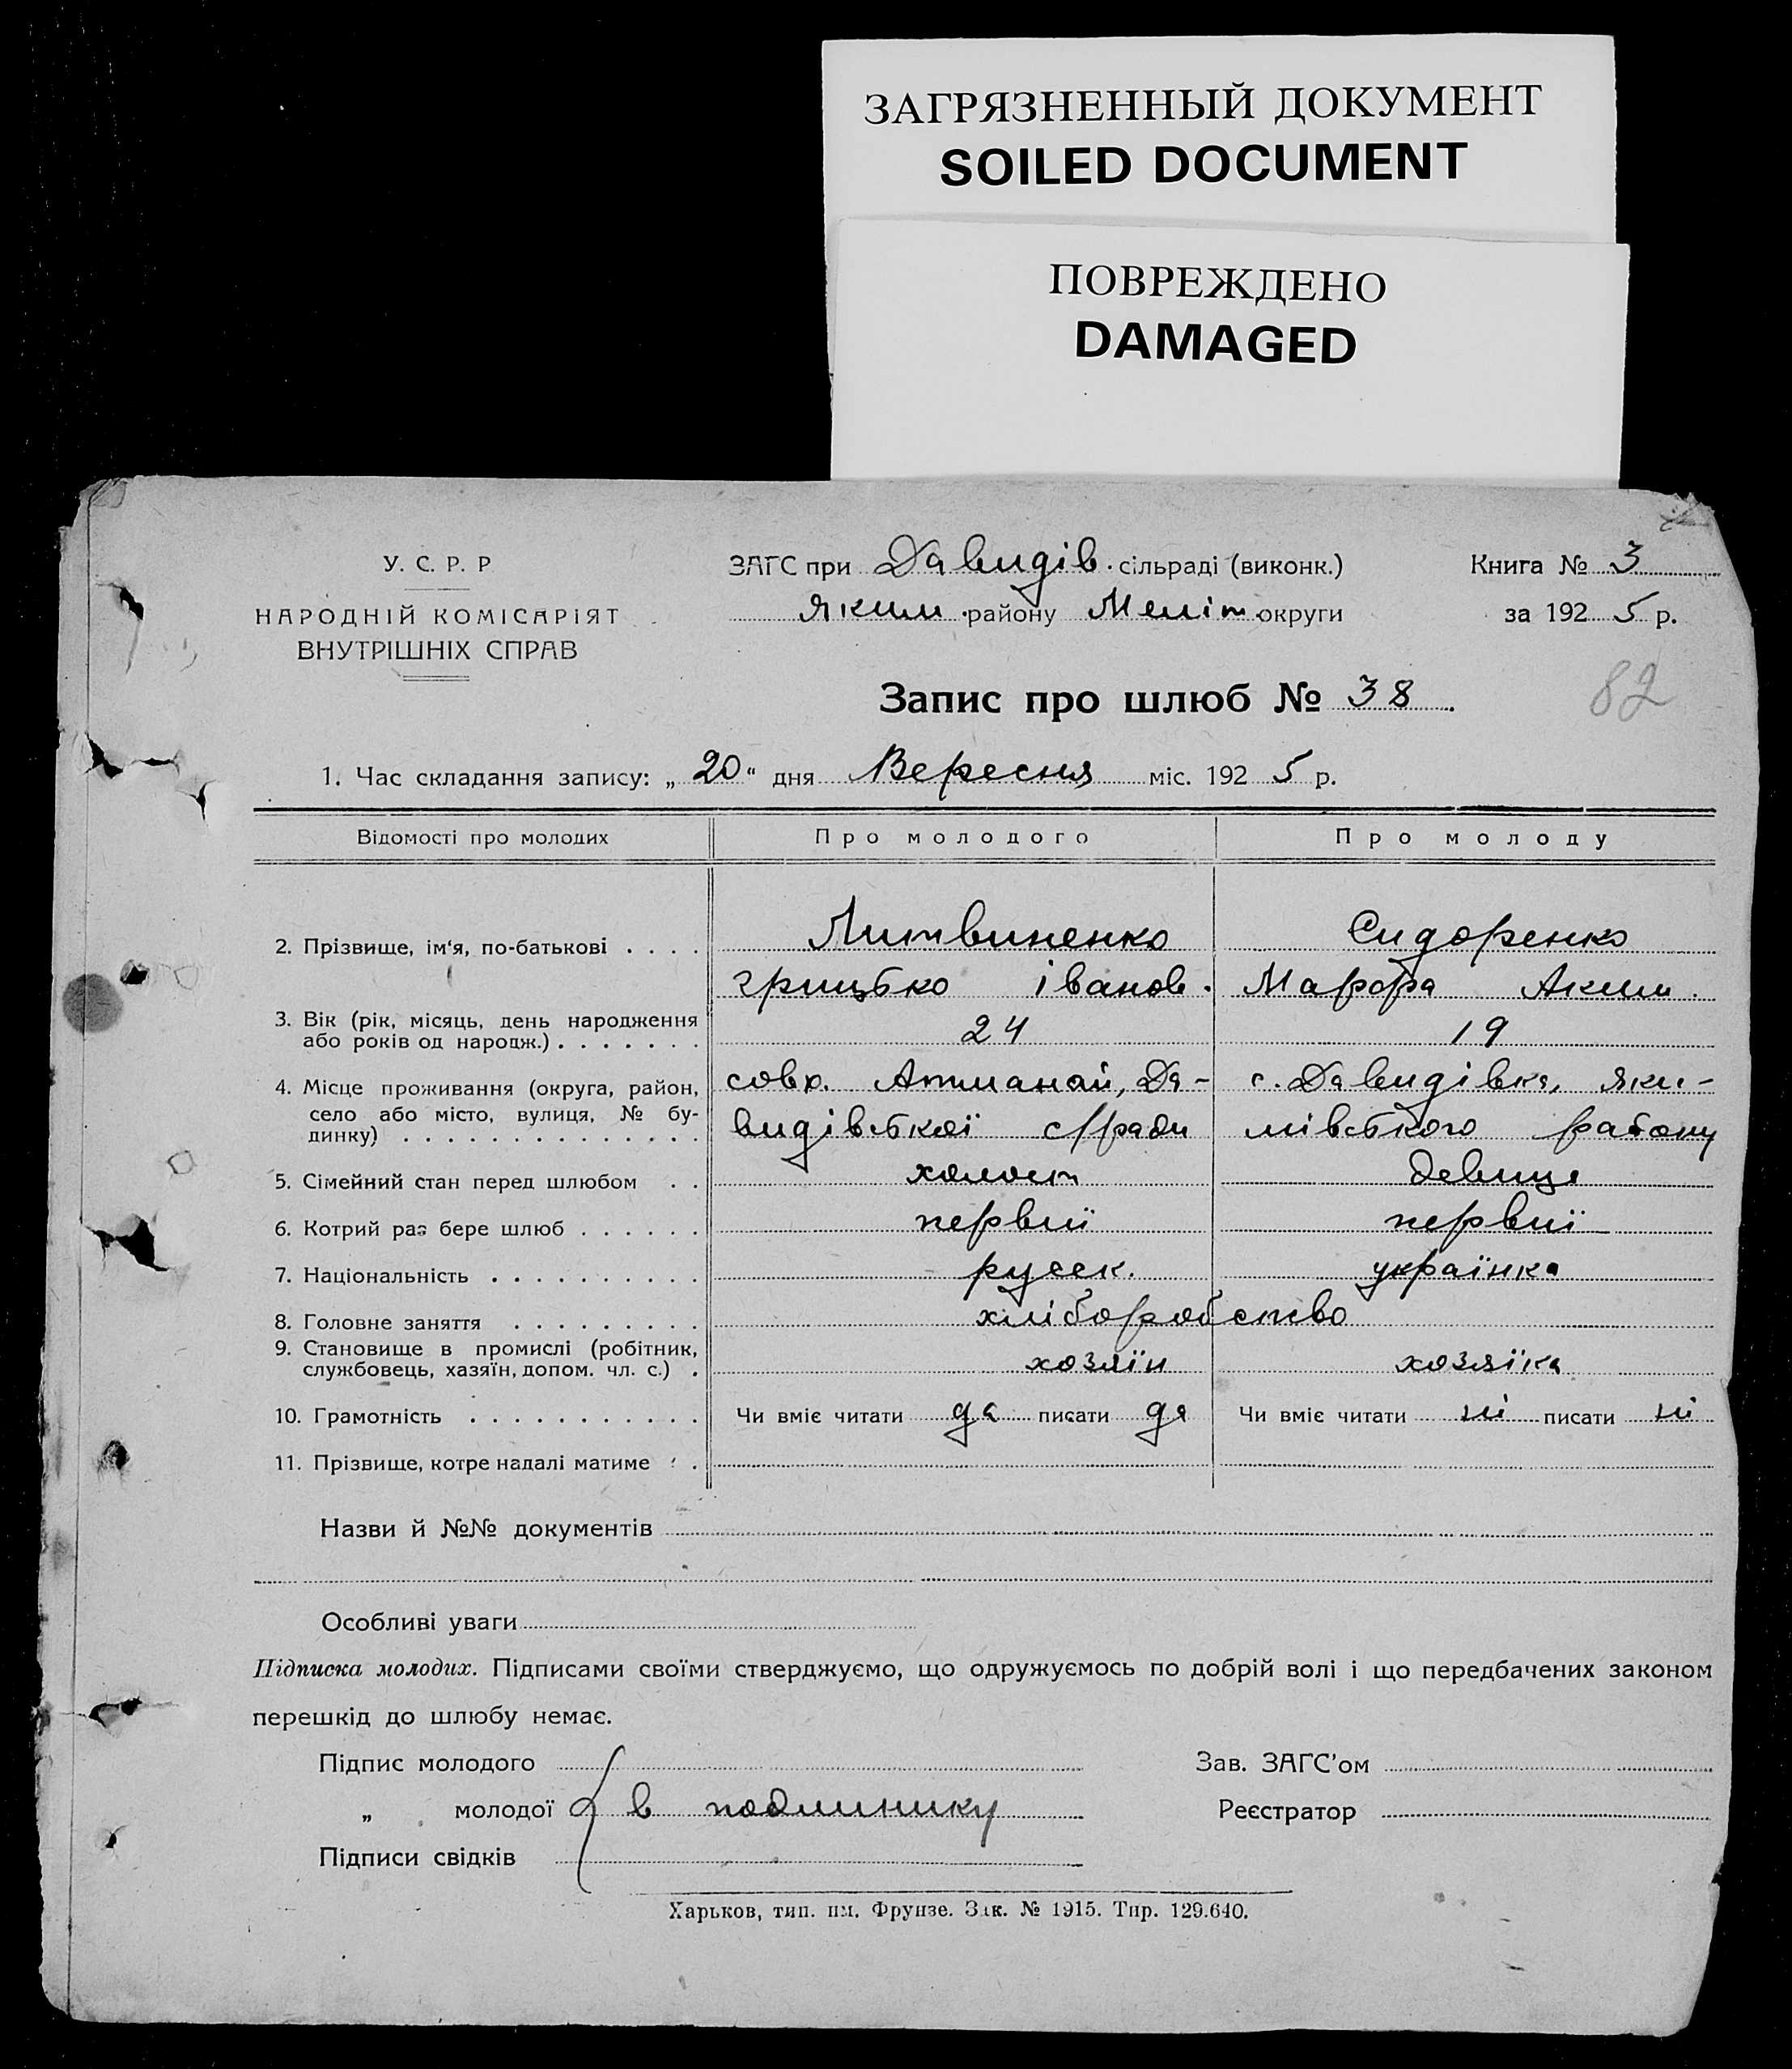 ЗАГРЯЗНЕННЫЙ ДОКУМЕНТ
SOILED DOCUMENT
ПОВРЕЖДЕНО
DAMAGED
У. С. Р. Р
НАРОДНІЙ КОМІСАРІЯТ
ВНУТРІШНІХ СПРАВ
ЗАГС при Давидів. сільраді (виконк.)
Яким. району Меліт. округи
Книга № 3
за 1925 р.
Запис про шлюб № 38.
82
1. Час складання запису: „20“ дня Вересня міс. 1925 р.
Відомості про молодих Про молодого Про молоду
2. Прізвище, ім'я, по-батькові . . . . Литвиненко Сидоренко
грицько іванов. Марфра Аким.
3. Вік (рік, місяць, день народження
або років од народж.) . . . . . . . 24 19
4. Місце проживання (округа, район, совх. Атманай, Да- с. Давидівка, Яки-
село або місто, вулиця, № бу- видівської с/ради мівського район​у
динку) . . . . . . . . . . . . . .
5. Сімейний стан перед шлюбом . . холост девиця
6. Котрий раз бере шлюб . . . . . . первиї первиї
7. Національність . . . . . . . . . . русск. українка
8. Головне заняття . . . . . . . . . хліборобство
9. Становище в промислі (робітник,
службовець, хазяїн, допом. чл. с.) . хозяїн хозяїка
10. Грамотність . . . . . . . . . . . Чи вміє читати да писати да Чи вміє читати ні писати ні
11. Прізвище, котре надалі матиме . .
Назви й №№ документів
Особливі уваги
Підписка молодих. Підписами своїми стверджуємо, що одружуємось по добрій волі і що передбачених законом
перешкід до шлюбу немає.
Підпис молодого Зав. ЗАГС'ом
„ молодої в подлинику Реєстратор
Підписи свідків
Харьков, тип. им. Фрунзе. Зак. № 1915. Тир. 129.640.